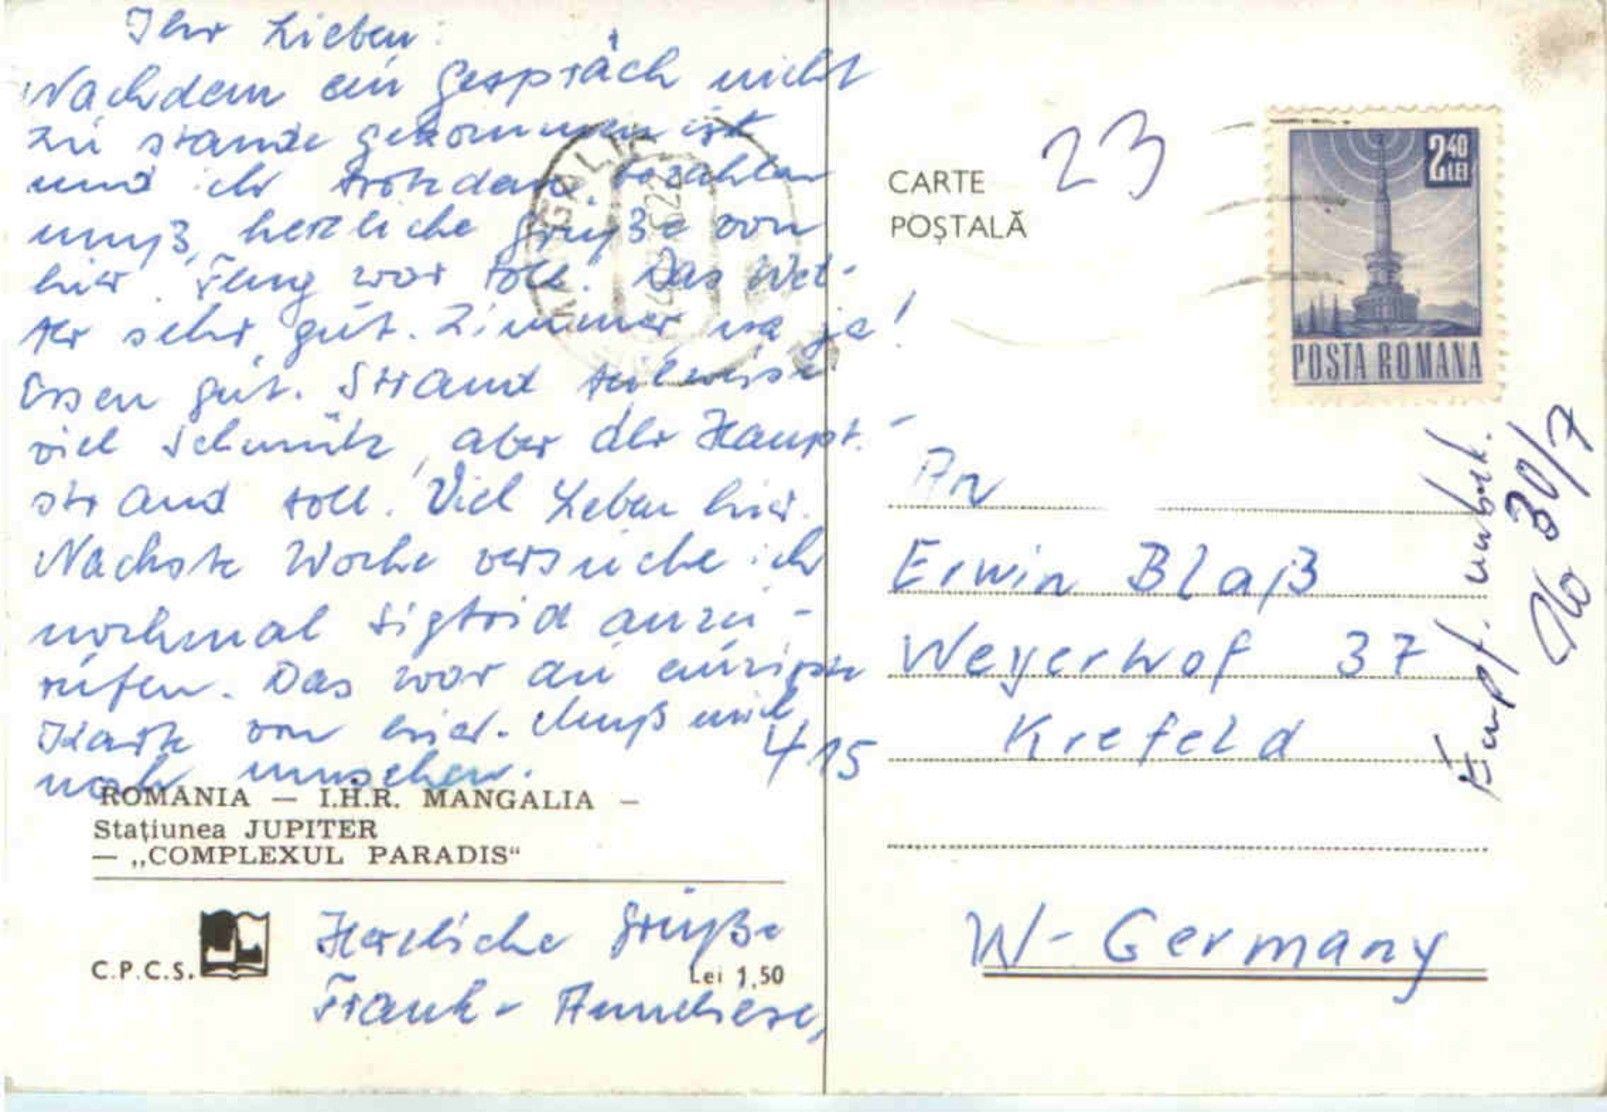 Ihr Lieben:
Nachdem ein Gespräch nicht
zu stande gekommen ist
und ich trotzdem bezahlen
muß, herzliche Grüße von
hier. Flug war toll. Das Wet-
ter sehr gut. Zimmer na ja!
Essen gut. Strand teilweise
viel Schmutz, aber der Haupt-
strand toll. Viel Leben hier.
Nächste Woche versuche ich
nochmal Sigtrid anzu-
rufen. Das war die einzigste
Karte von hier. Muß mich
noch umsehen.
415
ROMANIA — I.H.R. MANGALIA —
Stațiunea JUPITER
— „COMPLEXUL PARADIS"
C.P.C.S.
Lei 1,50
Herzliche Grüße
Frank - Anneliese,
MANGALIA
CARTE
POȘTALĂ
23
2 40
LEI
POSTA ROMANA
An
Erwin Blaß
Weyerhof 37
Krefeld
W-Germany
Empf. unbek.
30/7